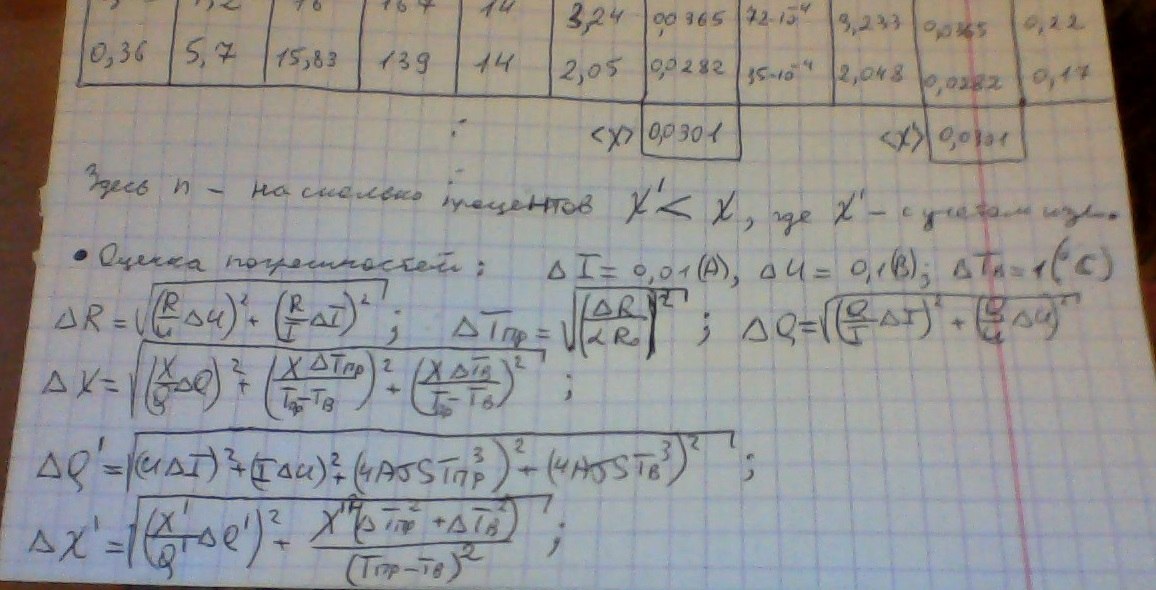 3,24 0,0365 72·10⁻⁴ 3,233 0,0365 0,22
0,36 5,7 15,83 139 14 2,05 0,0282 35·10⁻⁴ 2,048 0,0282 0,17
<χ> 0,0301 <χ> 0,0301
Здесь n – на сколько процентов χ' < χ, где χ' – с учетом изл.
• Оценка погрешностей: ΔI = 0,01(А), ΔU = 0,1(В); ΔTв = 1(°C)
ΔR = √((R/U ΔU)² + (R/I ΔI)²); ΔTпр = √((ΔR/αR₀)²); ΔQ = √((Q/I ΔI)² + (Q/U ΔU)²)
Δχ = √((χ/Q ΔQ)² + (χ ΔTпр/(Tпр – Tв))² + (χ ΔTв/(Tпр – Tв))²);
ΔQ' = √((UΔI)² + (IΔU)² + (4AσS Tпр³)² + (4AσS Tв³)²);
Δχ' = √((χ'/Q' ΔQ')² + χ'²(ΔTпр² + ΔTв²)/(Tпр – Tв)²);